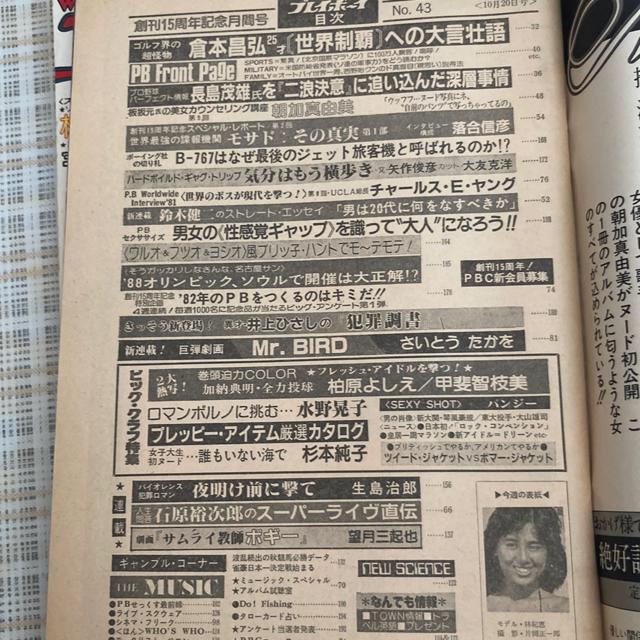 創刊15周年記念月間号
プレイボーイ
目次
No. 43
<10月20日号>
ゴルフ界の超怪物 倉本昌弘25才〖世界制覇〗への大言壮語 32
PB Front Page
プロ野球パーフェクト情報 長島茂雄氏を“二浪決意”に追い込んだ深層事情 36
板坂元の美女カウンセリング講座 朝加真由美 48
創刊15周年記念スペシャル・レポート
世界最強の諜報機関 モサド：その真実 第1部 インタビュー構成 落合信彦 54
ボーイング社の切り札 B-767はなぜ最後のジェット旅客機と呼ばれるのか!? 168
ハードボイルド・ギャグ・トリップ 気分はもう横歩き 文 矢作俊彦 カット 大友克洋 172
P.B Worldwide Interview'81 〈世界のボスが現代を撃つ！〉 UCLA総長 チャールス・E・ヤング 76
新連載 鈴木健二のストレート・エッセイ「男は20代に何をなすべきか」 52
PBセクササイズ 男女の《性感覚ギャップ》を識って“大人”になろう!!
〈ワルオ&フツオ&ヨシオ〉風ブリッ子・ハントでモ〜テモテ! 164
〈そうガッカリしなさんな、名古屋サン〉
'88オリンピック、ソウルで開催は大正解!? 185
創刊15周年! PBC新会員募集 74
創刊15周年記念特別企画 '82年のPBをつくるのはキミだ!!
4週連続／毎週1000名に記念品が当たるビッグ・アンケート第1弾
さっそう新登場! 井上ひさしの 犯罪調書 180
新連載! 巨弾劇画 Mr. BIRD さいとう たかを 81
ビッグ・グラフ特集
2大熱写! 巻頭迫力COLOR ★フレッシュ・アイドルを撃つ!★
加納典明・全力投球 柏原よしえ／甲斐智枝美
ロマンポルノに挑む…水野晃子
〈SEXY SHOT〉 パンジー
プレッピー・アイテム厳選カタログ
女子大生初ヌード …誰もいない海で 杉本純子
●プリティッシュでやるか、アメリカンでやるか●
ツイード・ジャケットVSボマー・ジャケット
連載
バイオレンス犯罪ロマン 夜明け前に撃て 生島治郎 156
人生問答 石原裕次郎のスーパーライヴ直伝 66
劇画『サムライ教師ボギー』 望月三起也 137
▶今週の表紙◀
モデル・林紀恵
撮影・片岡正一郎
ギャンブル・コーナー
THE MUSIC
★ミュージック・スペシャル
★アルバム試聴室
NEW SCIENCE
★なんでも情報★
●PBせっくす最前線
●ライブ・スクウェア
●シネマ・フリーク
●〈ほん〉WHO'S WHO
●Do! Fishing
●タローカード占い
★アンケート当選者発表
■TOWN情報■トラベル英語■プレゼント
の朝加真由美がヌード初公開 こ
の1冊のアルバムに匂うような女
のすべてが込められている!!